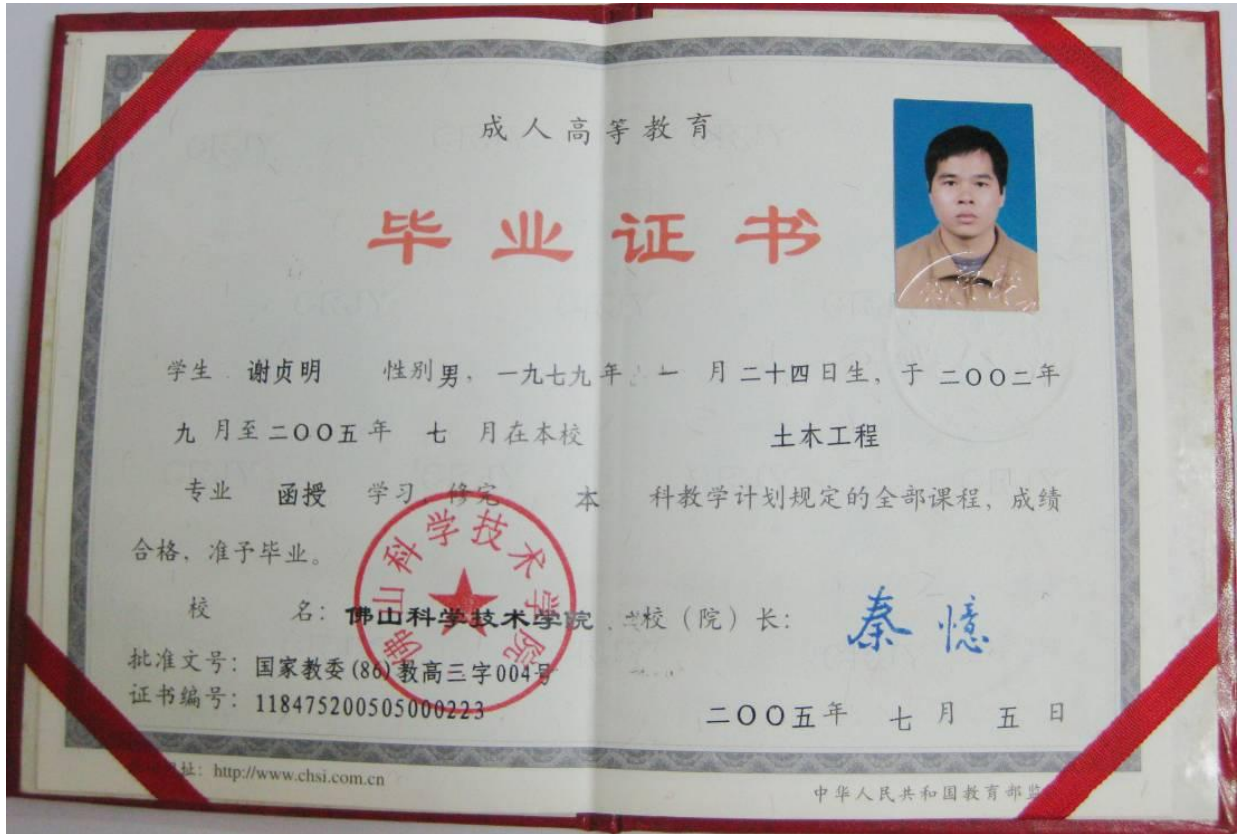 成人高等教育
毕业证书
学生 谢贞明 性别男，一九七九年 一 月二十四日生，于二〇〇二年
九月至二〇〇五年 七 月在本校 土木工程
专业 函授 学习，修完 本 科教学计划规定的全部课程，成绩
合格，准予毕业。
校 名：佛山科学技术学院 校（院）长：秦憶
佛山科学技术学院
批准文号：国家教委(86)教高三字004号
证书编号：118475200505000223
二〇〇五年 七 月 五 日
址：http://www.chsi.com.cn
中华人民共和国教育部监